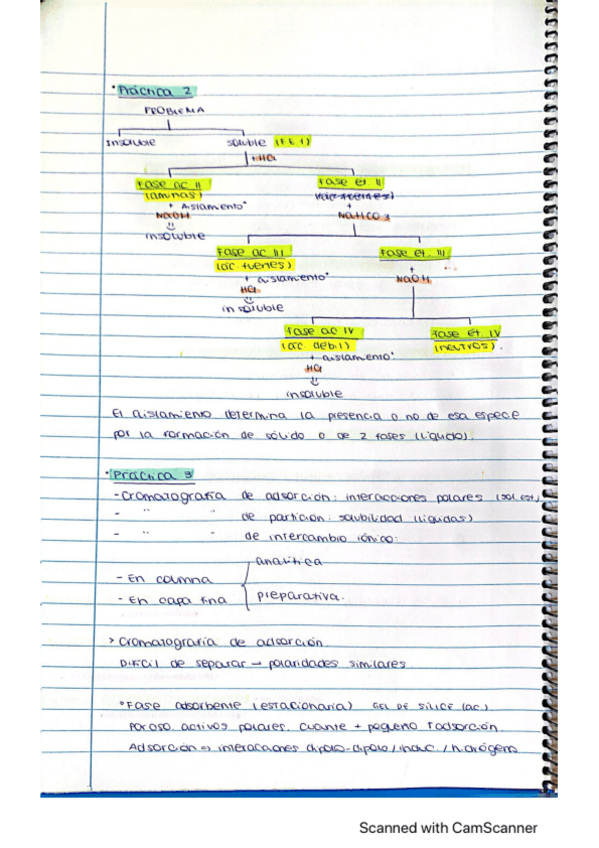 · Práctica 2
PROBLEMA
insoluble soluble (FE I)
+ HCl
Fase ac II Fase et II
(aminas)
+ Aislamiento* +
NaOH NaHCO3
insoluble
Fase ac III Fase et. III
(ac. fuertes) +
+ aislamiento* NaOH
HCl
insoluble
Fase ac IV Fase et IV
(ac. debil) (neutros).
+ aislamiento*
HCl
insoluble
El aislamiento determina la presencia o no de esa especie
por la formación de sólido o de 2 fases (líquido).
· Práctica 3
- Cromatografía de adsorción: interacciones polares (sol. est.
- " " de partición: solubilidad (líquidas)
- " " de intercambio iónico:
analítica
- En columna
- En capa fina preparativa.
> Cromatografía de adsorción
Difícil de separar → polaridades similares
° Fase adsorbente (estacionaria) GEL DE SÍLICE (ac.)
Poroso, activos polares. Cuante + pequeño ↑adsorción
Adsorción => interacciones dipolo-dipolo / induc. / hidrógeno
Scanned with CamScanner